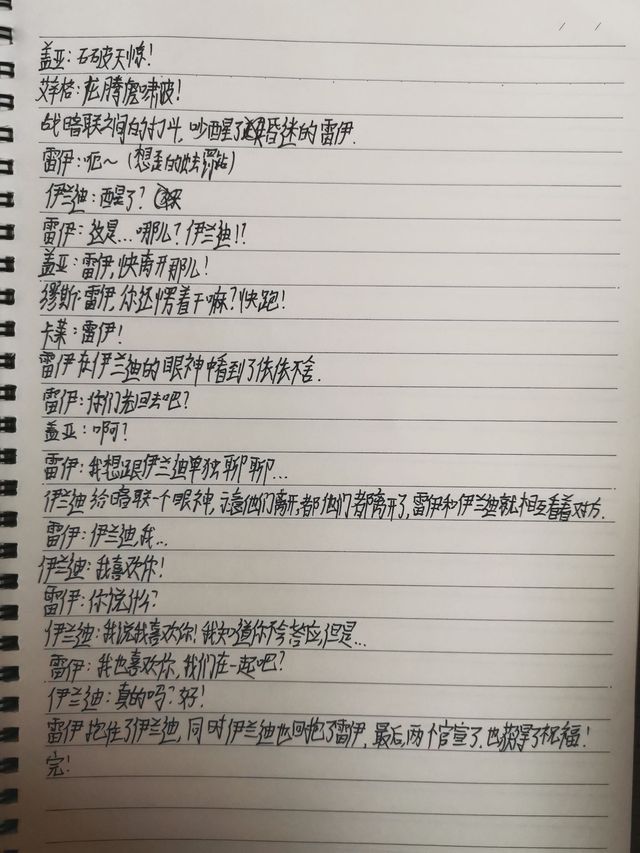 盖亚:石破天惊!
艾辛格:龙腾魔啸波!
战暗联之间的打斗,吵醒了昏迷的雷伊.
雷伊:呃~(想走的
伊兰迪:醒了?
雷伊:这是…哪儿?伊兰迪!?
盖亚:雷伊,快离开那儿!
缪斯:雷伊,你还愣着干嘛?快跑!
卡莱:雷伊!
雷伊在伊兰迪的眼神中看到了依依不舍.
雷伊:你们先回去吧?
盖亚:啊?
雷伊:我想跟伊兰迪单独聊聊…
伊兰迪给暗联一个眼神,示意他们离开,都他们都离开了,雷伊和伊兰迪就相互看着对方.
雷伊:伊兰迪,我…
伊兰迪:我喜欢你!
雷伊:你说什么?
伊兰迪:我说我喜欢你!我知道你不会答应,但是…
雷伊:我也喜欢你,我们在一起吧?
伊兰迪:真的吗?好!
雷伊抱住了伊兰迪,同时伊兰迪也回抱了雷伊,最后,两个官宣了,也获得了祝福!
完!